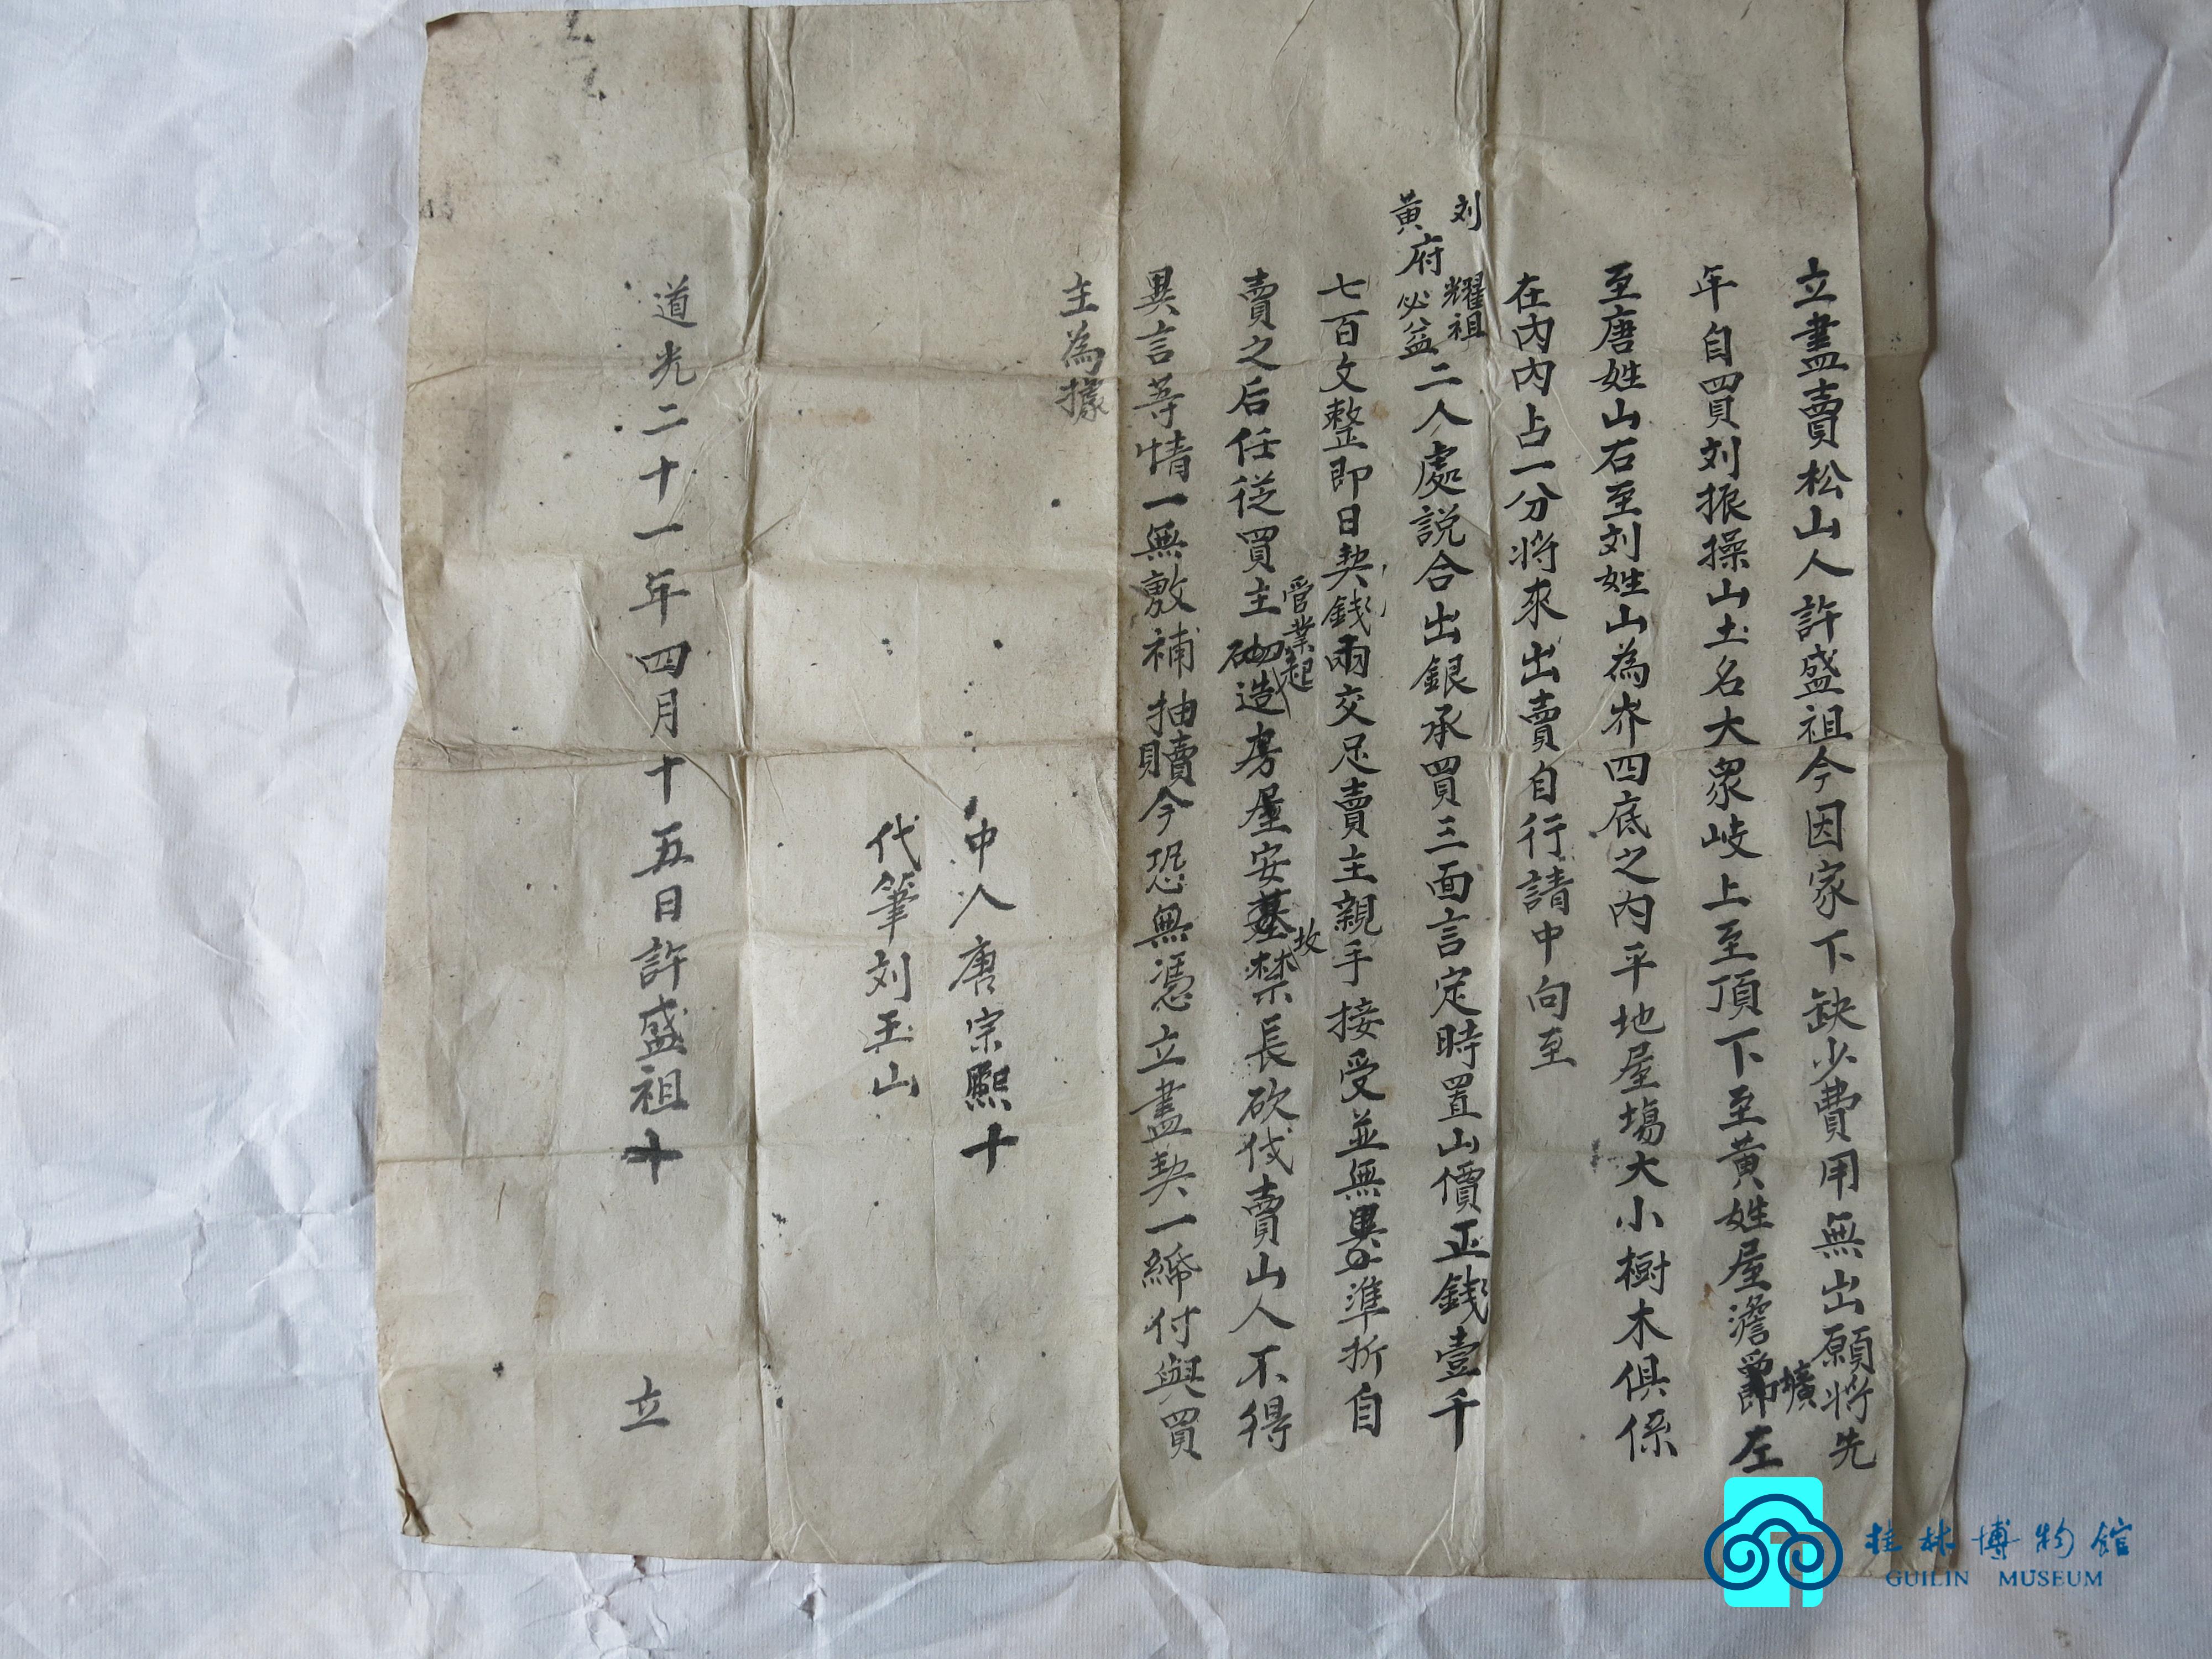 立盡賣松山人許盛祖今因家下缺少費用無出願將先
年自買刘振操山土名大衆岐上至頂下至黄姓屋澹壙左
至唐姓山右至刘姓山為界四底之内平地屋塲大小樹木俱係
在内内占一分将來出賣自行請中向至
刘黄府耀祖必益二人處説合出銀承買三面言定時置山價正錢壹千
七百文整即日契錢兩交足賣主親手接受並無異準折自
賣之后任從買主管業起造房屋安坟禁長砍伐賣山人不得
異言等情一無敷補抽贖今恐無憑立盡契一紙付與買
主為據
中人唐宗熙十
代筆刘玉山
道光二十一年四月十五日許盛祖十 立
桂林博物館
GUILIN MUSEUM